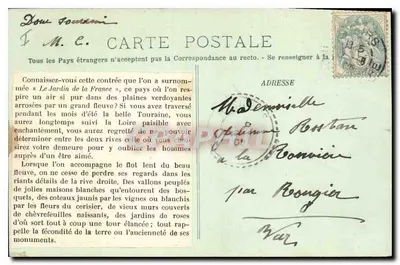 Doux Souvenir
M. C. CARTE POSTALE
Tous les Pays étrangers n'acceptent pas la Correspondance au recto. - Se renseigner à la
ADRESSE
Connaissez-vous cette contrée que l'on a surnom-
mée « Le Jardin de la France », ce pays où l'on res-
pire un air si pur dans des plaines verdoyantes
arrosées par un grand fleuve? Si vous avez traversé
pendant les mois d'été la belle Touraine, vous
aurez longtemps suivi la Loire paisible avec
enchantement, vous aurez regretté de ne pouvoir
déterminer entre les deux rives celle où vous choi-
siriez votre demeure pour y oublier les hommes
auprès d'un être aimé.
Lorsque l'on accompagne le flot lent du beau
fleuve, on ne cesse de perdre ses regards dans les
riants détails de la rive droite. Des vallons peuplés
de jolies maisons blanches qu'entourent des bos-
quets, des coteaux jaunis par les vignes ou blanchis
par les fleurs du cerisier, de vieux murs couverts
de chèvrefeuilles naissants, des jardins de roses
d'où sort tout à coup une tour élancée; tout rap-
pelle la fécondité de la terre ou l'ancienneté de ses
monuments.
Mademoiselle
Rostan
à la
par Rougier
Var